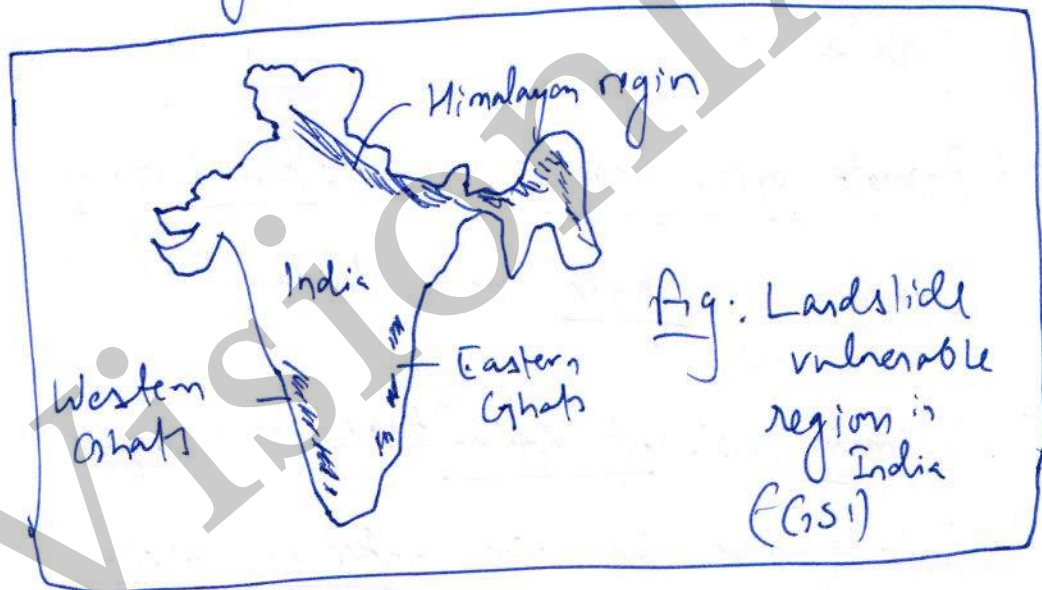 Himalayan region
India
Western
Ghats
Eastern
Ghats
Fig: Landslide
vulnerable
region in
India
(GSI)
Vision